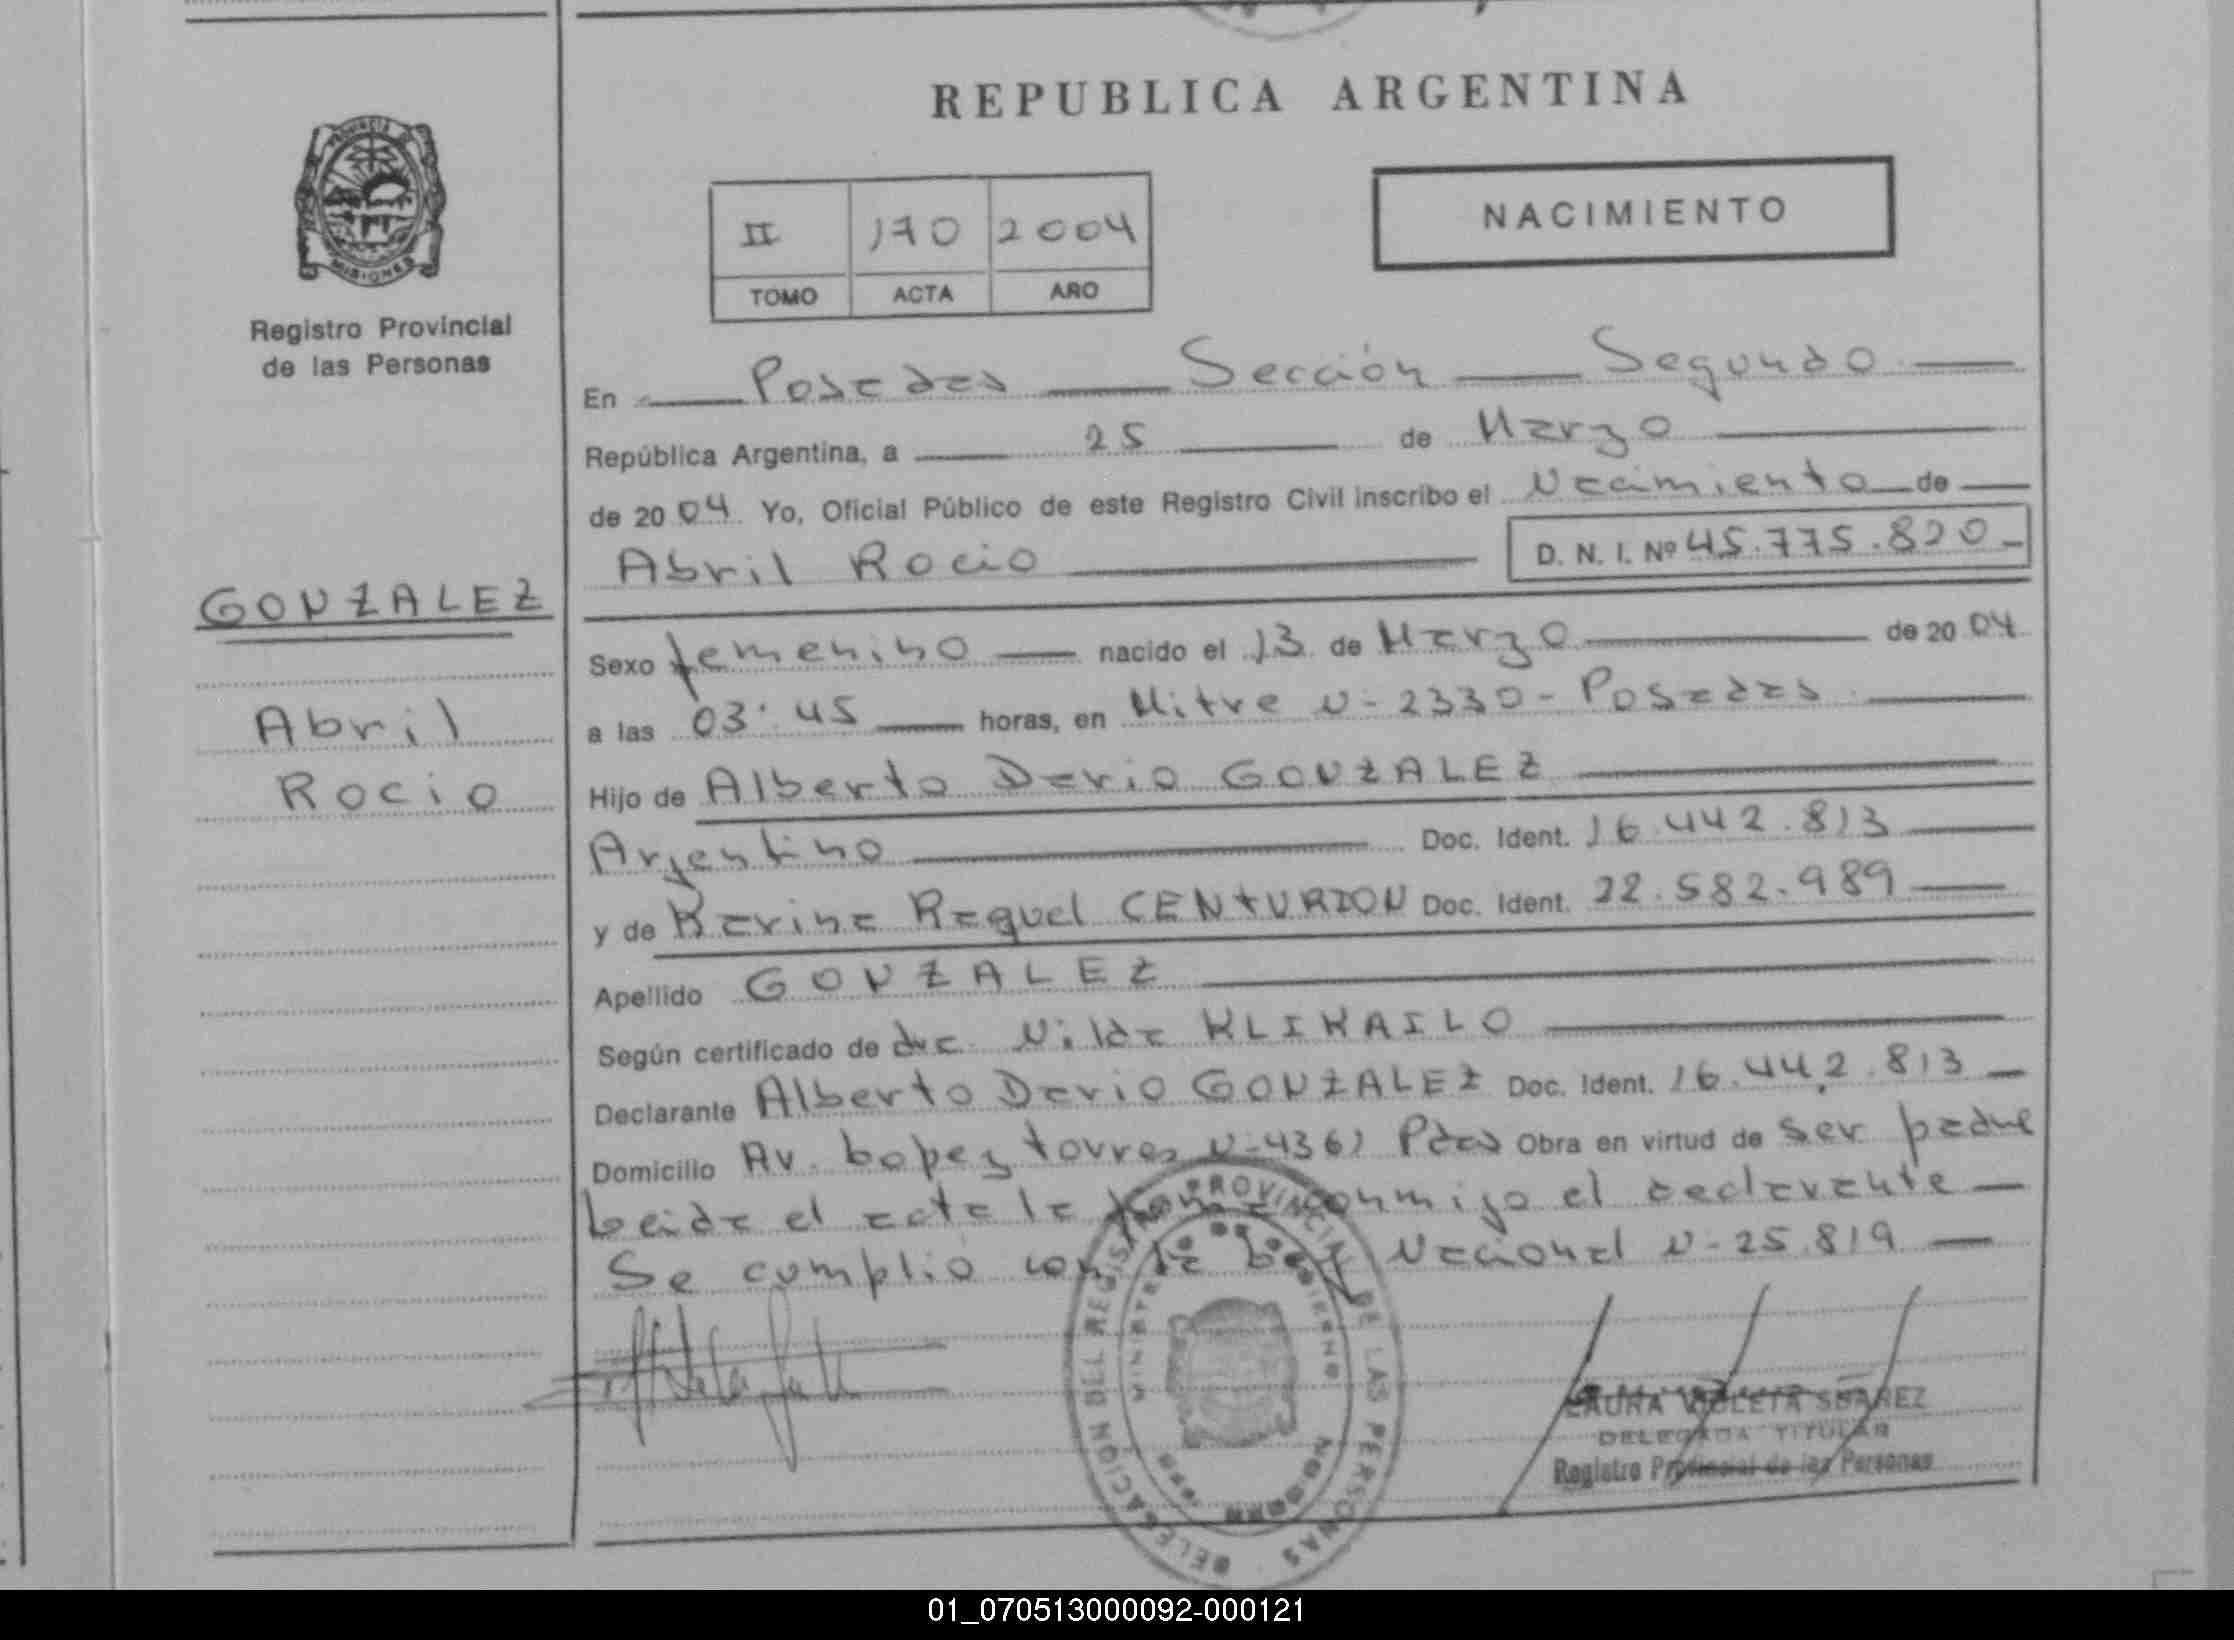 REPUBLICA ARGENTINA
PROVINCIA DE
MISIONES
Registro Provincial
de las Personas
II 170 2004
TOMO ACTA AÑO
NACIMIENTO
GONZALEZ
Abril
Rocio
En Posadas Sección Segundo
República Argentina, a 25 de Marzo
de 2004 Yo, Oficial Público de este Registro Civil inscribo el Nacimiento de
Abril Rocio D. N. I. Nº 45.775.820
Sexo femenino nacido el 13 de Marzo de 2004
a las 03:45 horas, en Mitre N-2330-Posadas
Hijo de Alberto Dario GONZALEZ
Argentino Doc. Ident. 16.442.813
y de Karina Raquel CENTURION Doc. Ident. 22.582.989
Apellido GONZALEZ
Según certificado de dra. Nilda KLIKAILO
Declarante Alberto Dario GONZALEZ Doc. Ident. 16.442.813
Domicilio Av. Lopez torres N-4361 Pdas Obra en virtud de ser padre
Leida el acta la firma conmigo el declarante
Se cumplio con la Ley Nacional N-25.819
DELEGACIÓN DEL REGISTRO PROVINCIAL DE LAS PERSONAS
LAURA VIOLETA SUAREZ
DELEGADA TITULAR
Registro Provincial de las Personas
01_070513000092-000121